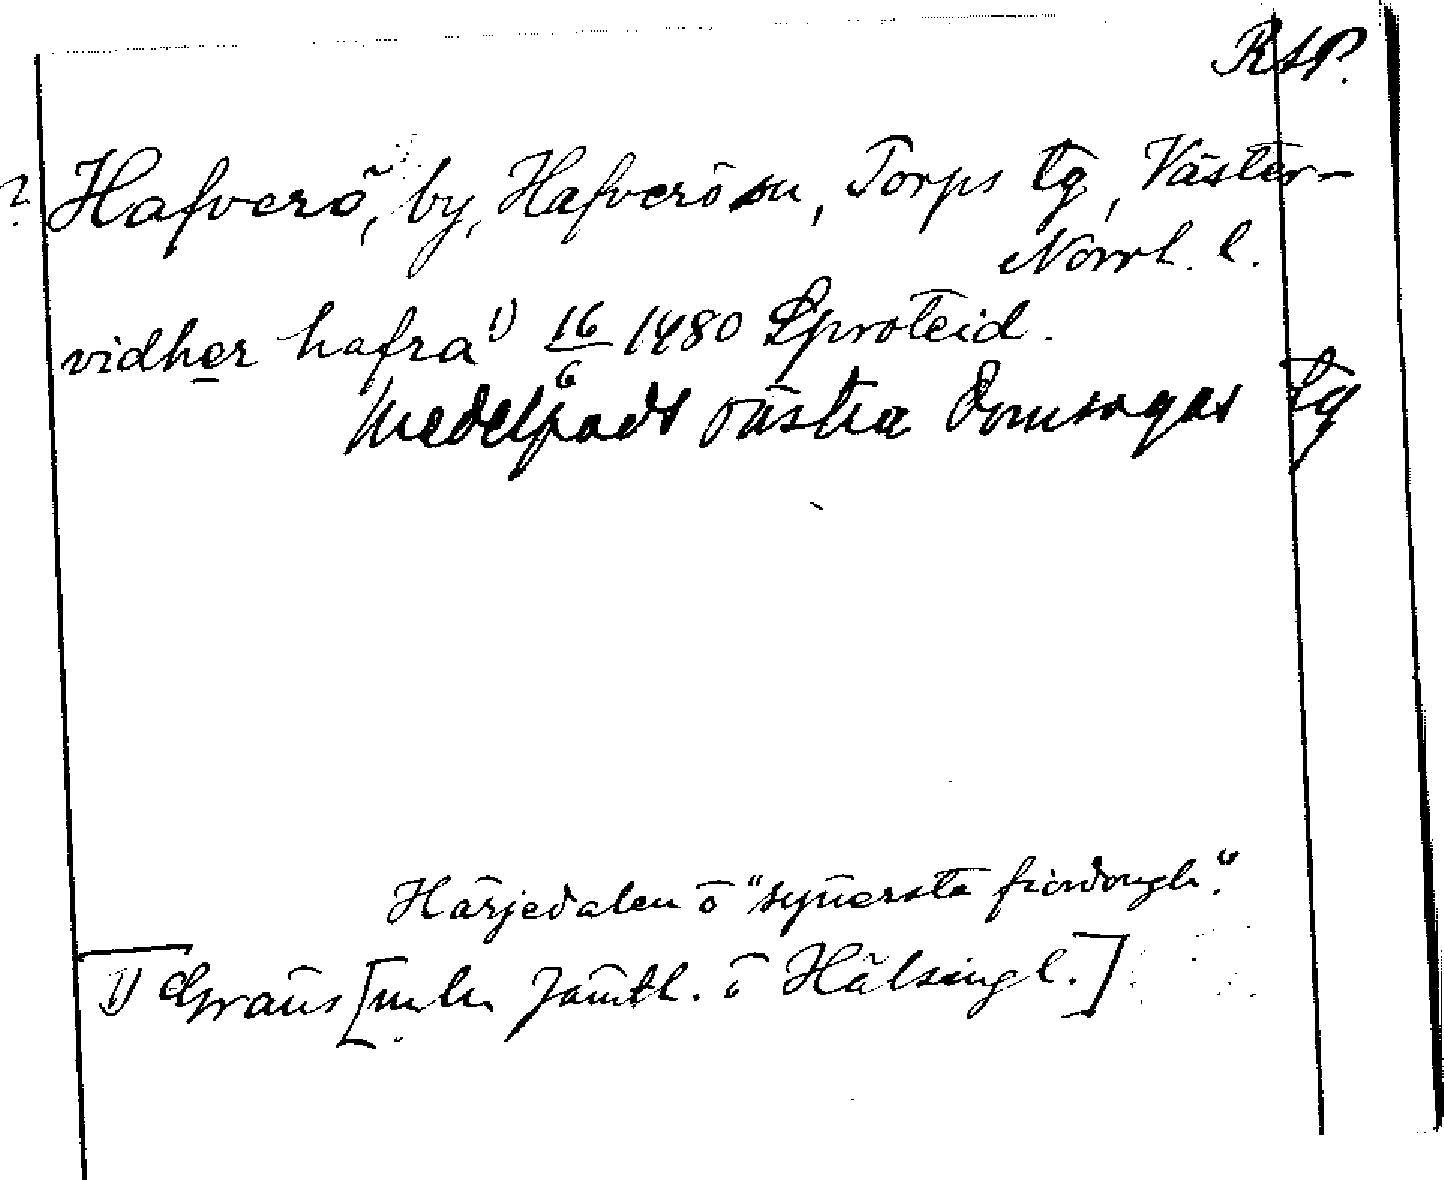 RAP.
? Hafverö, by, Hafverö sn, Torps tg, Väster-
Norrl. l.
vidher hafra 1) 16/6 1480 Sproteid.
Medelpads västra domsagas tg
Härjedalen o "synersta fiordongh".
1) Gräns [mln Jämtl. o Hälsingl.]